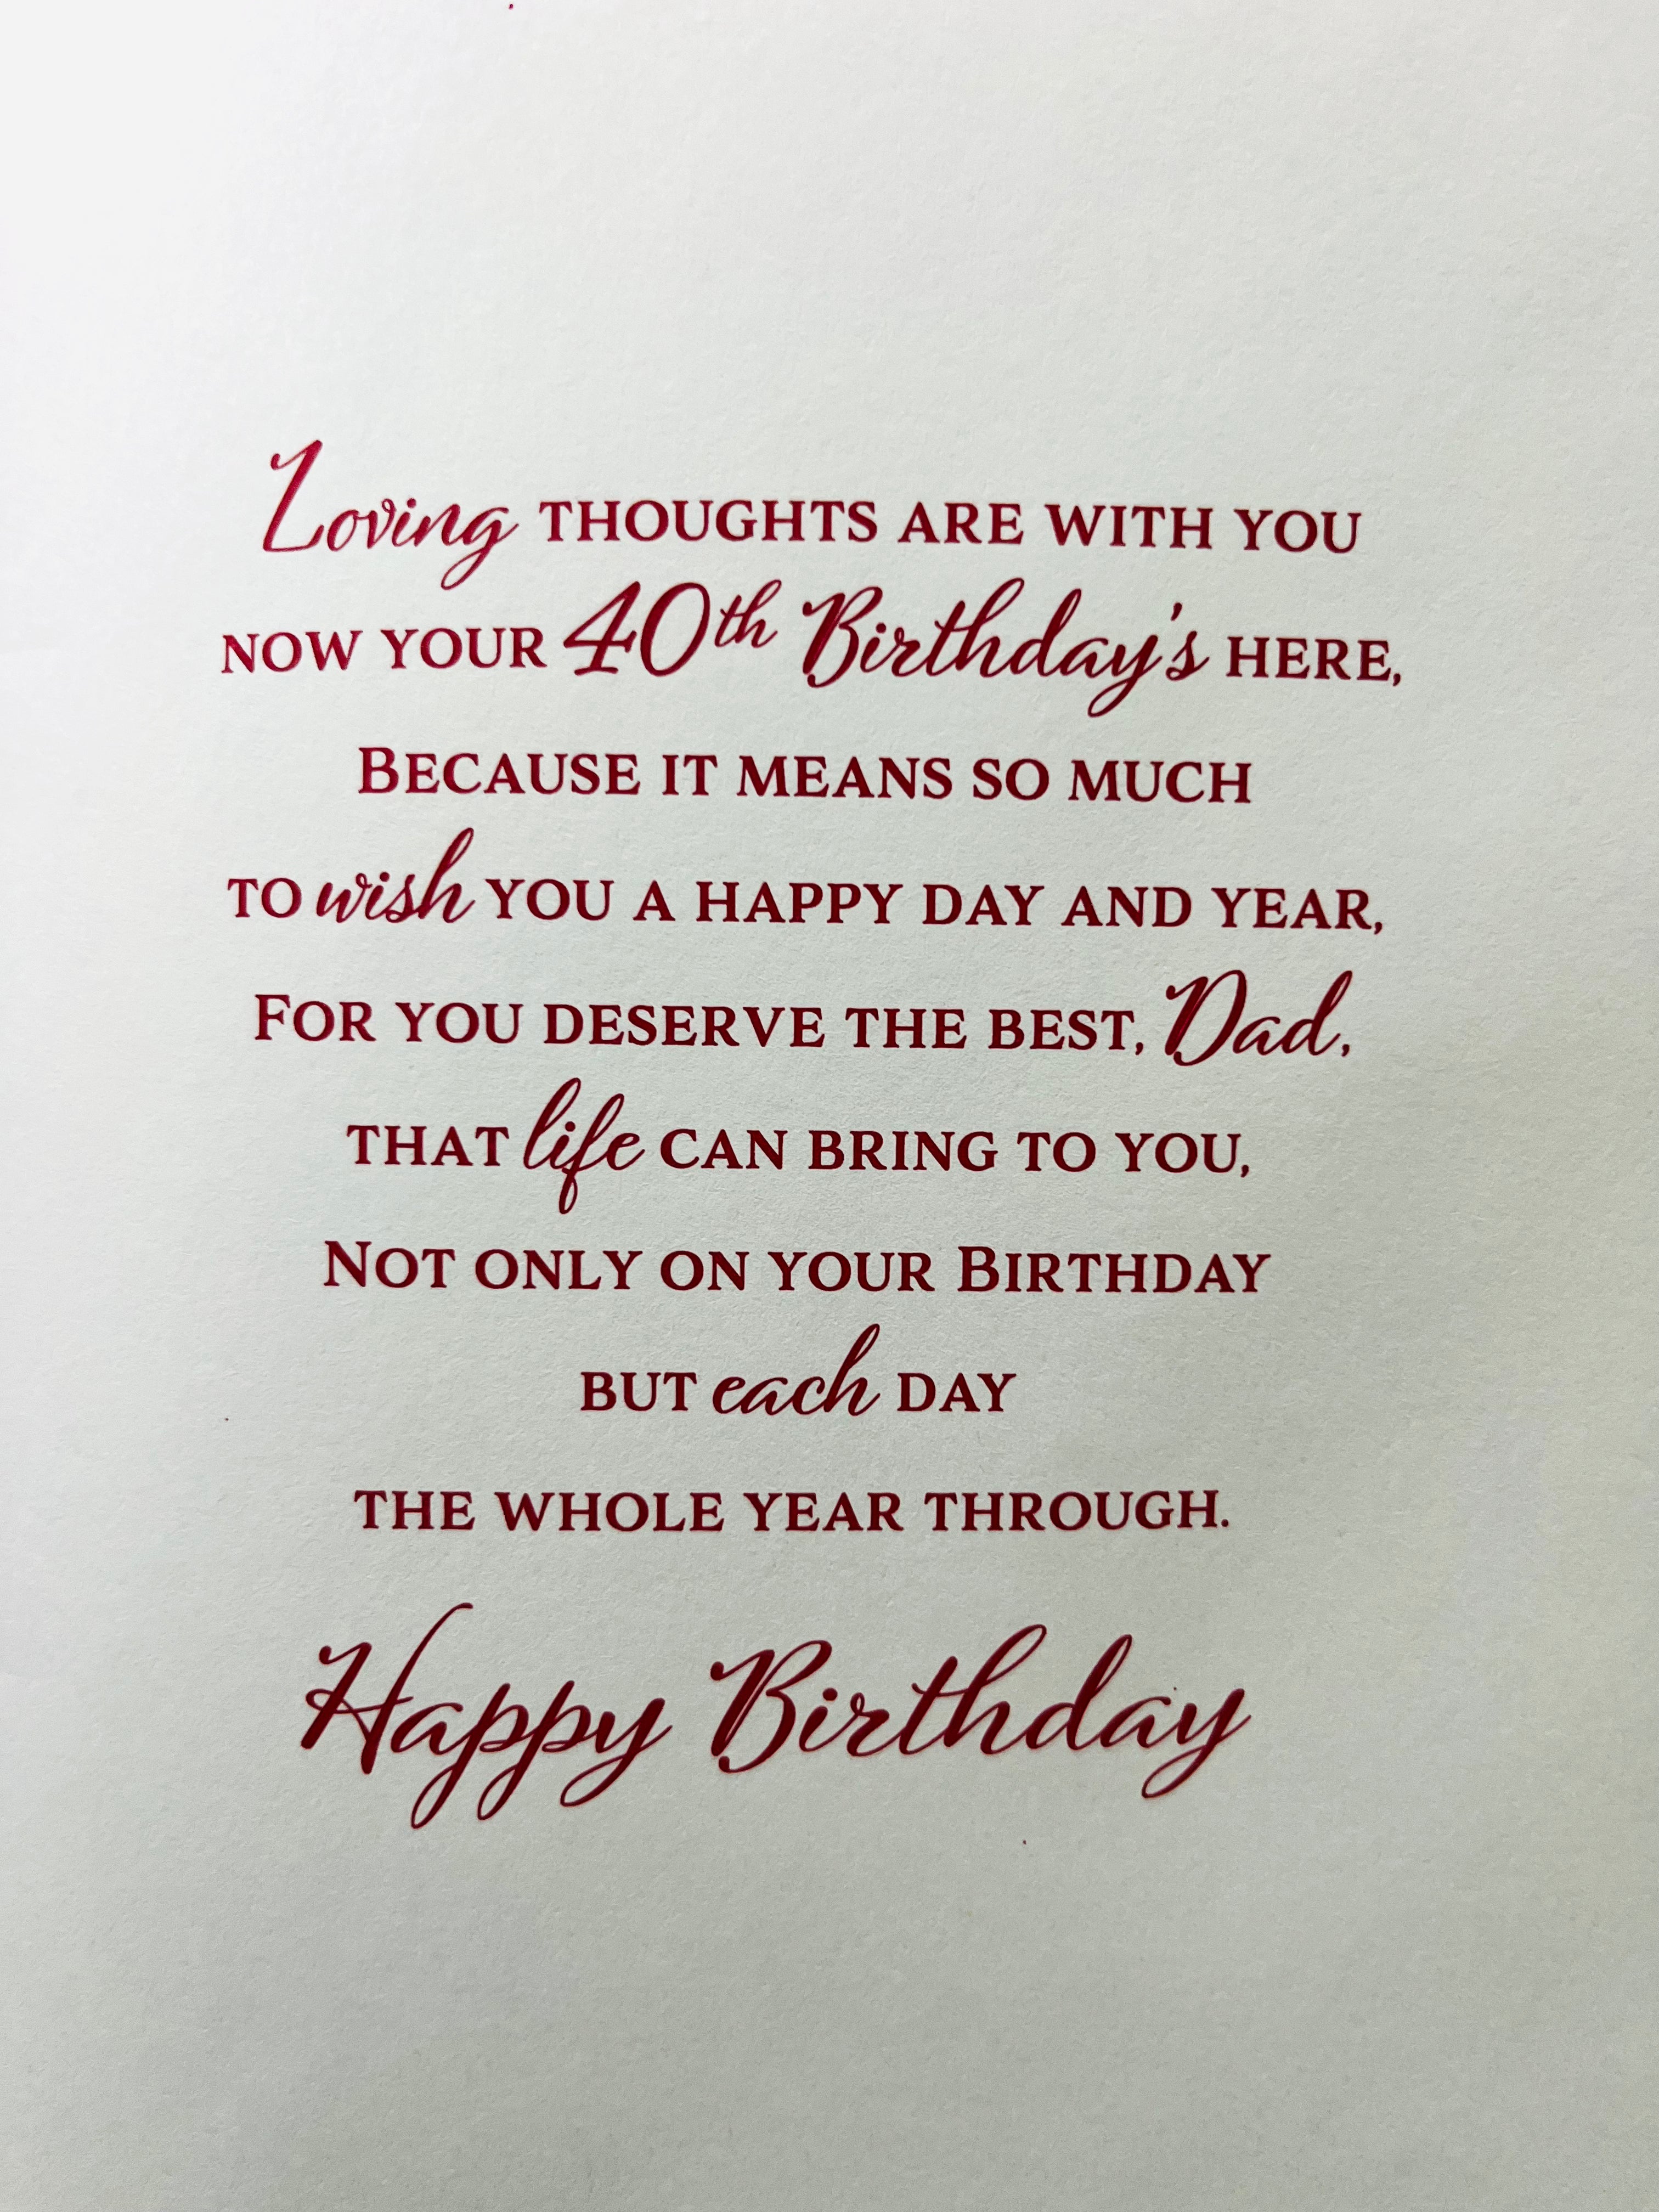 Loving THOUGHTS ARE WITH YOU
NOW YOUR 40th Birthday's HERE,
BECAUSE IT MEANS SO MUCH
TO wish YOU A HAPPY DAY AND YEAR,
FOR YOU DESERVE THE BEST, Dad,
THAT life CAN BRING TO YOU,
NOT ONLY ON YOUR BIRTHDAY
BUT each DAY
THE WHOLE YEAR THROUGH.
Happy Birthday